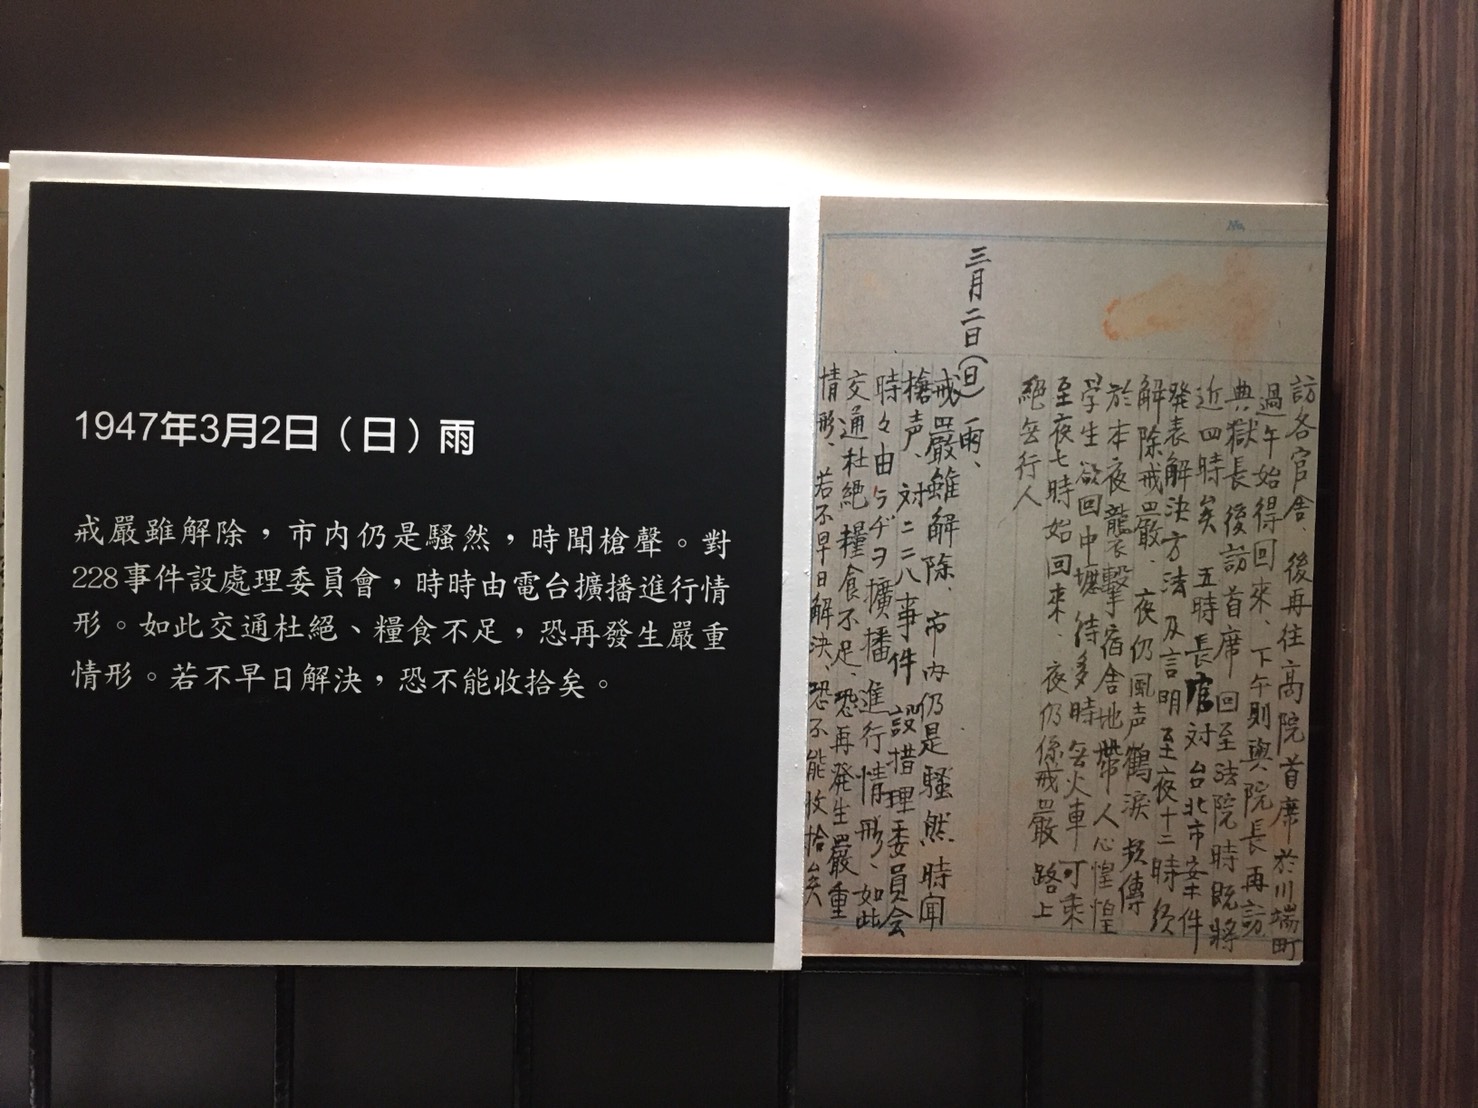 1947年3月2日（日）雨
戒嚴雖解除，市內仍是騷然，時聞槍聲。對
228事件設處理委員會，時時由電台擴播進行情
形。如此交通杜絕、糧食不足，恐再發生嚴重
情形。若不早日解決，恐不能收拾矣。
No.
訪各官舍、後再往高院首席於川端町
過午始得回來、下午則與院長再訪
典獄長後訪首席回至法院時既將
近四時矣 五時長官対台北市案件
発表解決方法及言明至夜十二時須
解除戒嚴、夜仍風声鶴淚 頻傳
於本夜襲擊宿舍地帶人心惶惶
学生欲回中壢待多時無火車可乘
至夜七時始回來、夜仍係戒嚴路上
絕無行人
三月二日(日) 雨、
戒嚴雖解除、市內仍是騷然時聞
槍声、対二二八事件設措理委員会
時々由ラヂヲ擴播進行情形、如此
交通杜絕糧食不足、恐再発生嚴重
情形、若不早日解決、恐不能收拾矣